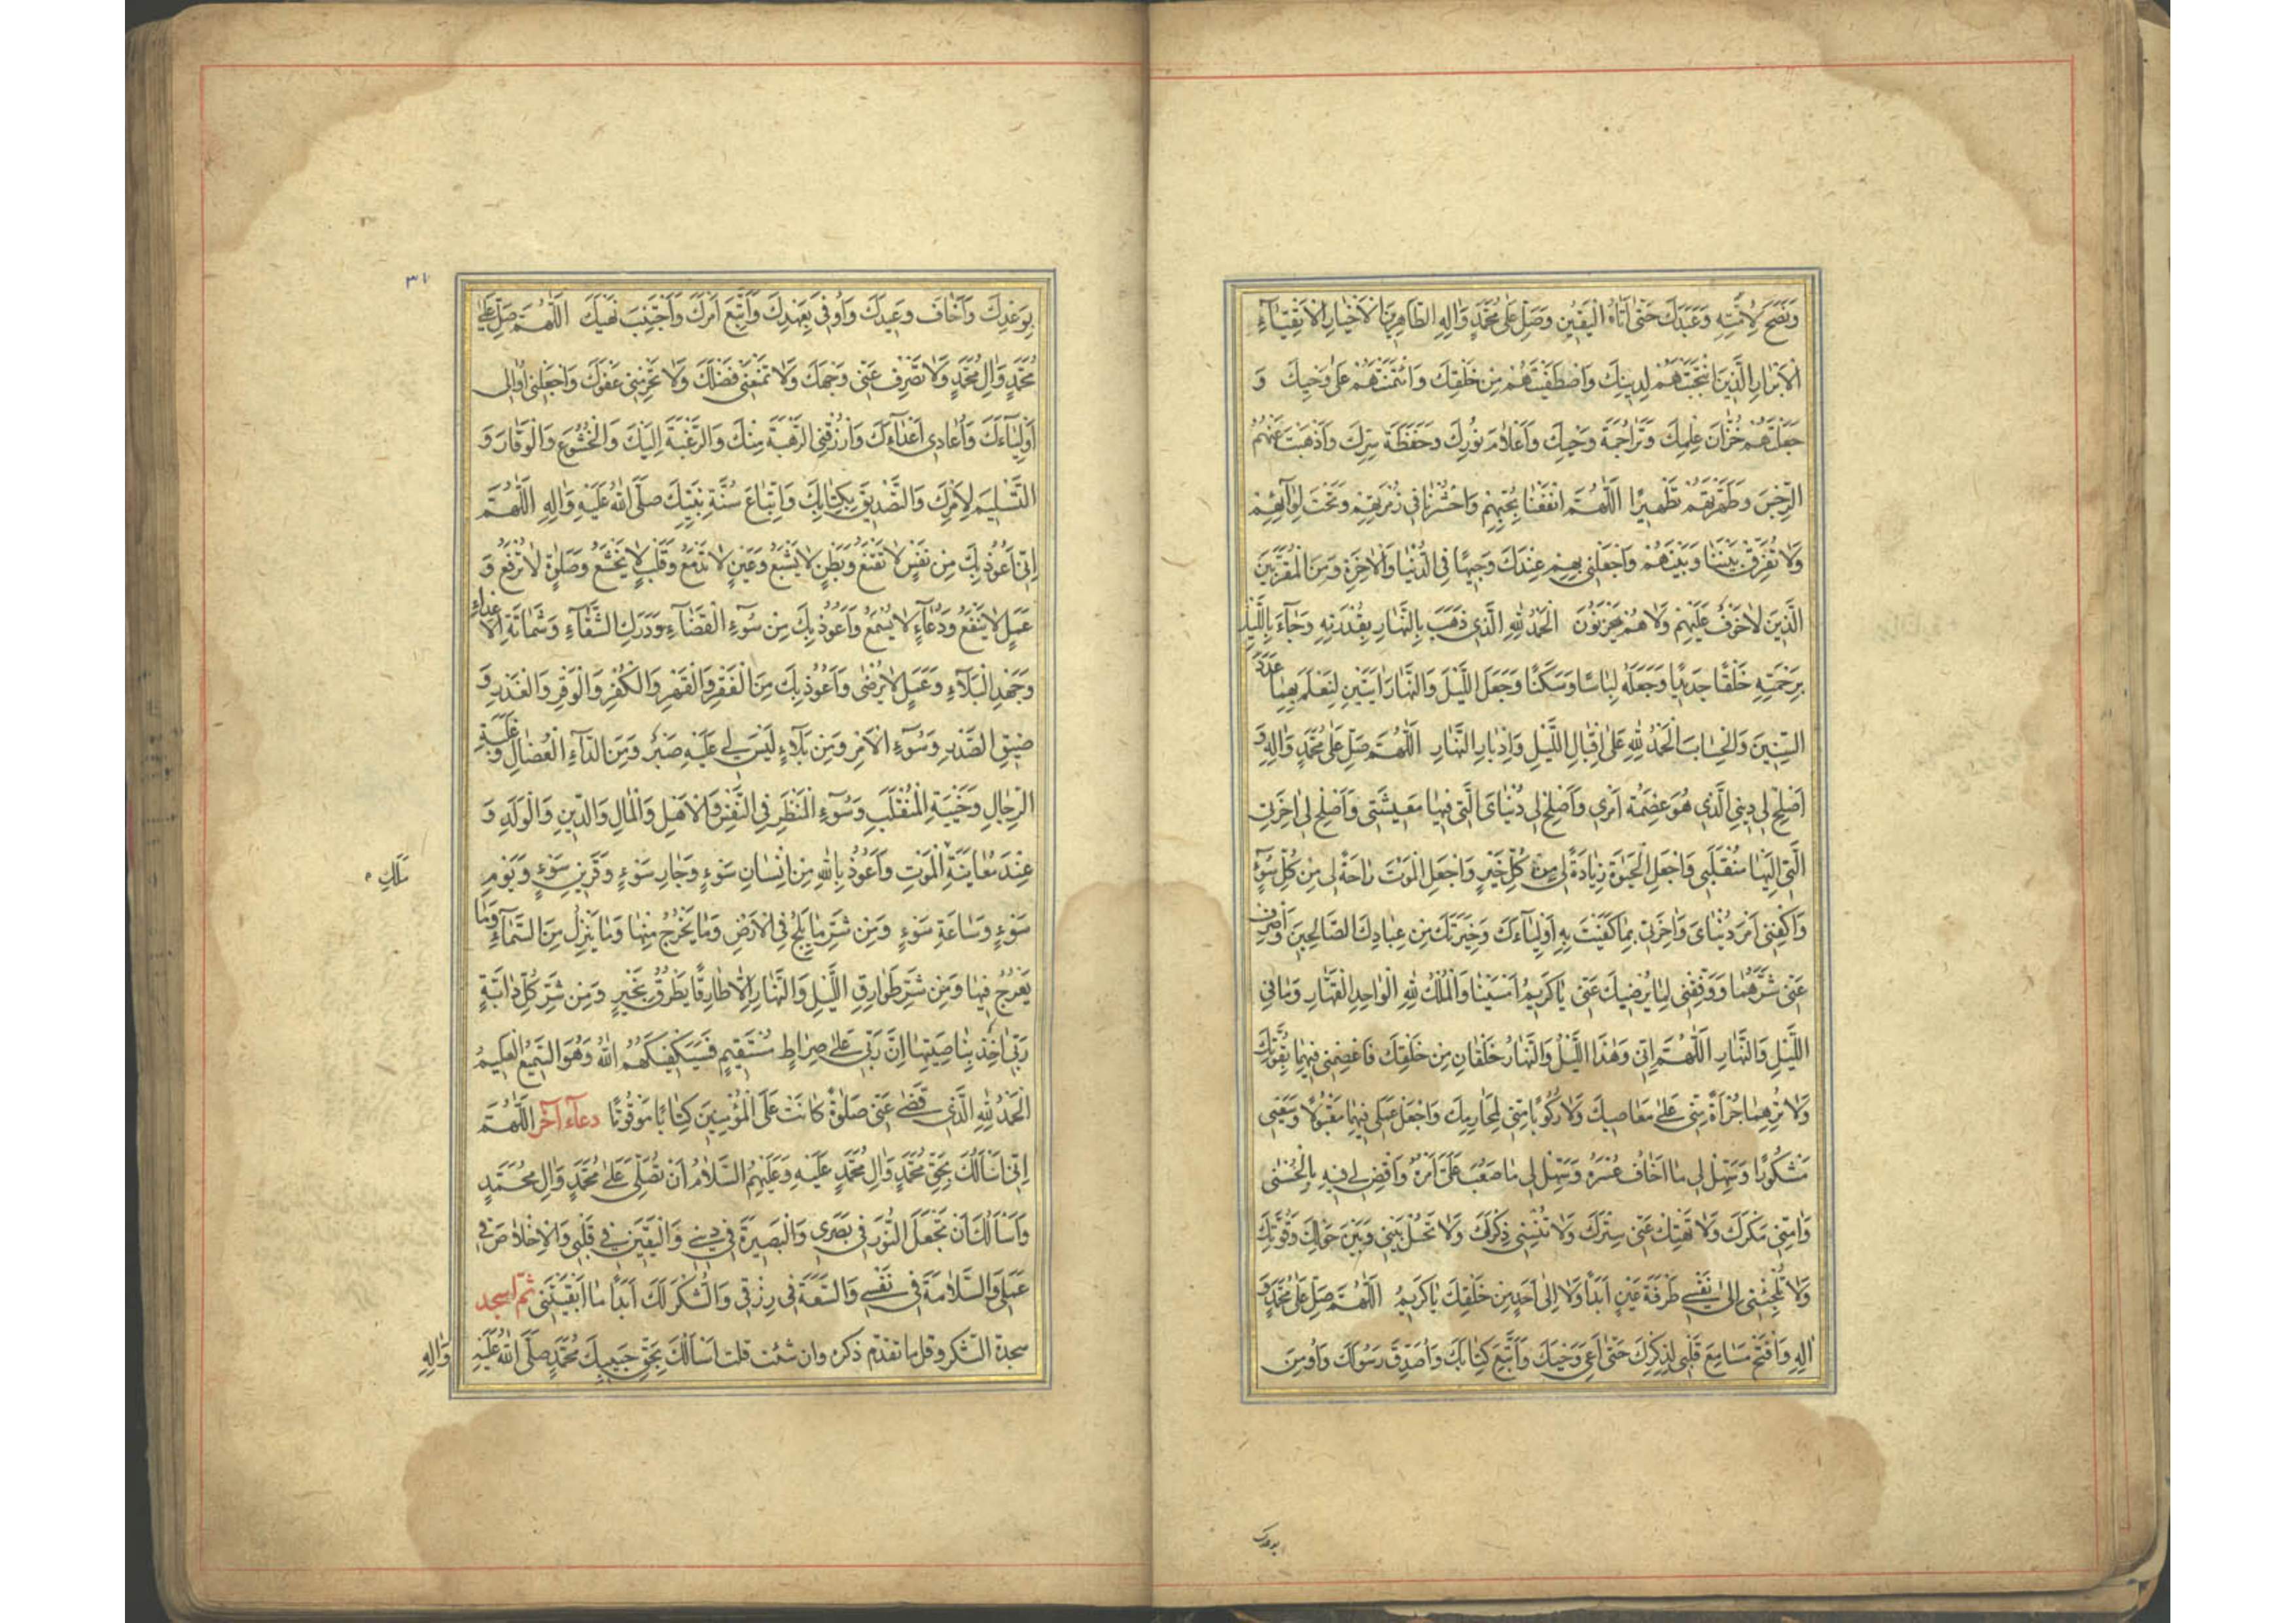 وَنَصَحَ لِاُمَّتِهِ وَعَبَدَكَ حَتّٰى اَتَاهُ الْيَقِينُ وَصَلِّ عَلٰى مُحَمَّدٍ وَاٰلِهِ الطَّاهِرِينَ الْاَخْيَارِ الْاَتْقِيَآءِ
الْاَبْرَارِ الَّذِينَ انْتَجَبْتَهُمْ لِدِينِكَ وَاصْطَفَيْتَهُمْ مِنْ خَلْقِكَ وَائْتَمَنْتَهُمْ عَلٰى وَحْيِكَ وَ
جَعَلْتَهُمْ خُزَّانَ عِلْمِكَ وَتَرَاجِمَةَ وَحْيِكَ وَاَعْلَامَ نُورِكَ وَحَفَظَةَ سِرِّكَ وَاَذْهَبْتَ عَنْهُمُ
الرِّجْسَ وَطَهَّرْتَهُمْ تَطْهِيرًا اَللّٰهُمَّ انْفَعْنَا بِحُبِّهِمْ وَاحْشُرْنَا فِي زُمْرَتِهِمْ وَتَحْتَ لِوَآئِهِمْ
وَلَا تُفَرِّقْ بَيْنَنَا وَبَيْنَهُمْ وَاجْعَلْنِي بِهِمْ عِنْدَكَ وَجِيهًا فِي الدُّنْيَا وَالْاٰخِرَةِ وَمِنَ الْمُقَرَّبِينَ
الَّذِينَ لَا خَوْفٌ عَلَيْهِمْ وَلَا هُمْ يَحْزَنُونَ اَلْحَمْدُ لِلّٰهِ الَّذِي ذَهَبَ بِالنَّهَارِ بِقُدْرَتِهِ وَجَآءَ بِاللَّيْلِ
بِرَحْمَتِهِ خَلْقًا جَدِيدًا وَجَعَلَهُ لِبَاسًا وَسَكَنًا وَجَعَلَ اللَّيْلَ وَالنَّهَارَ اٰيَتَيْنِ لِيُعْلَمَ بِهِمَا عَدَدُ
السِّنِينَ وَالْحِسَابَ اَلْحَمْدُ لِلّٰهِ عَلٰى اِقْبَالِ اللَّيْلِ وَاِدْبَارِ النَّهَارِ اَللّٰهُمَّ صَلِّ عَلٰى مُحَمَّدٍ وَاٰلِهِ وَ
اَصْلِحْ لِي دِينِيَ الَّذِي هُوَ عِصْمَةُ اَمْرِي وَاَصْلِحْ لِي دُنْيَايَ الَّتِي فِيهَا مَعِيشَتِي وَاَصْلِحْ لِي اٰخِرَتِي
الَّتِي اِلَيْهَا مُنْقَلَبِي وَاجْعَلِ الْحَيٰوةَ زِيَادَةً لِي مِنْ كُلِّ خَيْرٍ وَاجْعَلِ الْمَوْتَ رَاحَةً لِي مِنْ كُلِّ سُوٓءٍ
وَاكْفِنِي اَمْرَ دُنْيَايَ وَاٰخِرَتِي بِمَا كَفَيْتَ بِهِ اَوْلِيَآءَكَ وَخِيَرَتَكَ مِنْ عِبَادِكَ الصَّالِحِينَ وَاصْرِفْ
عَنِّي شَرَّهُمَا وَوَفِّقْنِي لِمَا يُرْضِيكَ عَنِّي يَا كَرِيمُ اَمْسَيْنَا وَالْمُلْكُ لِلّٰهِ الْوَاحِدِ الْقَهَّارِ وَمَا فِي
اللَّيْلِ وَالنَّهَارِ اَللّٰهُمَّ اِنِّي وَهٰذَا اللَّيْلُ وَالنَّهَارُ خَلْقَانِ مِنْ خَلْقِكَ فَاعْصِمْنِي فِيهِمَا بِقُوَّتِكَ
وَلَا تُرِهِمَا جُرْأَةً مِنِّي عَلٰى مَعَاصِيكَ وَلَا رُكُوبًا مِنِّي لِمَحَارِمِكَ وَاجْعَلْ عَمَلِي فِيهِمَا مَقْبُولًا وَسَعْيِي
مَشْكُورًا وَسَهِّلْ لِي مَا اَخَافُ عُسْرَهُ وَسَهِّلْ لِي مَا صَعُبَ عَلَيَّ اَمْرُهُ وَاقْضِ لِي فِيهِ بِالْحُسْنٰى
وَاٰمِنِّي مَكْرَكَ وَلَا تَهْتِكْ عَنِّي سِتْرَكَ وَلَا تُنْسِنِي ذِكْرَكَ وَلَا تَحُلْ بَيْنِي وَبَيْنَ حَوْلِكَ وَقُوَّتِكَ
وَلَا تُلْجِئْنِي اِلٰى نَفْسِي طَرْفَةَ عَيْنٍ اَبَدًا وَلَا اِلٰى اَحَدٍ مِنْ خَلْقِكَ يَا كَرِيمُ اَللّٰهُمَّ صَلِّ عَلٰى مُحَمَّدٍ وَ
اٰلِهِ وَافْتَحْ مَسَامِعَ قَلْبِي لِذِكْرِكَ حَتّٰى اَعِيَ وَحْيَكَ وَاَتَّبِعَ كِتَابَكَ وَاُصَدِّقَ رَسُولَكَ وَاُومِنَ
بوعدك
٣١
بِوَعْدِكَ وَاَخَافَ وَعِيدَكَ وَاُوفِيَ بِعَهْدِكَ وَاَتَّبِعَ اَمْرَكَ وَاَجْتَنِبَ نَهْيَكَ اَللّٰهُمَّ صَلِّ عَلٰى
مُحَمَّدٍ وَاٰلِ مُحَمَّدٍ وَلَا تَصْرِفْ عَنِّي وَجْهَكَ وَلَا تَمْنَعْنِي فَضْلَكَ وَلَا تَحْرِمْنِي عَفْوَكَ وَاجْعَلْنِي اُوَالِي
اَوْلِيَآءَكَ وَاُعَادِي اَعْدَآءَكَ وَارْزُقْنِي الرَّهْبَةَ مِنْكَ وَالرَّغْبَةَ اِلَيْكَ وَالْخُشُوعَ وَالْوَقَارَ وَ
التَّسْلِيمَ لِاَمْرِكَ وَالتَّصْدِيقَ بِكِتَابِكَ وَاتِّبَاعَ سُنَّةِ نَبِيِّكَ صَلَّى اللّٰهُ عَلَيْهِ وَاٰلِهِ اَللّٰهُمَّ
اِنِّي اَعُوذُ بِكَ مِنْ نَفْسٍ لَا تَقْنَعُ وَبَطْنٍ لَا يَشْبَعُ وَعَيْنٍ لَا تَدْمَعُ وَقَلْبٍ لَا يَخْشَعُ وَصَلٰوةٍ لَا تُرْفَعُ وَ
عَمَلٍ لَا يَنْفَعُ وَدُعَآءٍ لَا يُسْمَعُ وَاَعُوذُ بِكَ مِنْ سُوٓءِ الْقَضَآءِ وَدَرَكِ الشَّقَآءِ وَشَمَاتَةِ الْاَعْدَآءِ
وَجَهْدِ الْبَلَآءِ وَعَمَلٍ لَا يُرْضٰى وَاَعُوذُ بِكَ مِنَ الْفَقْرِ وَالْقَهْرِ وَالْكُفْرِ وَالْوَقْرِ وَالْغَدْرِ وَ
ضِيقِ الصَّدْرِ وَسُوٓءِ الْاَمْرِ وَمِنْ بَلَآءٍ لَيْسَ لِي عَلَيْهِ صَبْرٌ وَمِنَ الدَّآءِ الْعُضَالِ وَغَلَبَةِ
الرِّجَالِ وَخَيْبَةِ الْمُنْقَلَبِ وَسُوٓءِ الْمَنْظَرِ فِي النَّفْسِ وَالْاَهْلِ وَالْمَالِ وَالدِّينِ وَالْوَلَدِ وَ
عِنْدَ مُعَايَنَةِ الْمَوْتِ وَاَعُوذُ بِاللّٰهِ مِنْ اِنْسَانِ سَوْءٍ وَجَارِ سَوْءٍ وَقَرِينِ سَوْءٍ وَيَوْمِ
سَوْءٍ وَسَاعَةِ سَوْءٍ وَمِنْ شَرِّ مَا يَلِجُ فِي الْاَرْضِ وَمَا يَخْرُجُ مِنْهَا وَمَا يَنْزِلُ مِنَ السَّمَآءِ وَمَا
يَعْرُجُ فِيهَا وَمِنْ شَرِّ طَوَارِقِ اللَّيْلِ وَالنَّهَارِ اِلَّا طَارِقًا يَطْرُقُ بِخَيْرٍ وَمِنْ شَرِّ كُلِّ دَابَّةٍ
رَبِّي اٰخِذٌ بِنَاصِيَتِهَا اِنَّ رَبِّي عَلٰى صِرَاطٍ مُسْتَقِيمٍ فَسَيَكْفِيكَهُمُ اللّٰهُ وَهُوَ السَّمِيعُ الْعَلِيمُ
اَلْحَمْدُ لِلّٰهِ الَّذِي قَضٰى عَنِّي صَلٰوةً كَانَتْ عَلَى الْمُؤْمِنِينَ كِتَابًا مَوْقُوتًا دعآء آخر اَللّٰهُمَّ
اِنِّي اَسْاَلُكَ بِحَقِّ مُحَمَّدٍ وَاٰلِ مُحَمَّدٍ عَلَيْهِ وَعَلَيْهِمُ السَّلَامُ اَنْ تُصَلِّيَ عَلٰى مُحَمَّدٍ وَاٰلِ مُحَمَّدٍ
وَاَسْاَلُكَ اَنْ تَجْعَلَ النُّورَ فِي بَصَرِي وَالْبَصِيرَةَ فِي دِينِي وَالْيَقِينَ فِي قَلْبِي وَالْاِخْلَاصَ فِي
عَمَلِي وَالسَّلَامَةَ فِي نَفْسِي وَالسَّعَةَ فِي رِزْقِي وَالشُّكْرَ لَكَ اَبَدًا مَا اَبْقَيْتَنِي ثمّ اسجد
سجدة الشكر وقل ما تقدّم ذكره وان شئت قلت اَسْاَلُكَ بِحَقِّ حَبِيبِكَ مُحَمَّدٍ صَلَّى اللّٰهُ عَلَيْهِ
وَاٰلِهِ